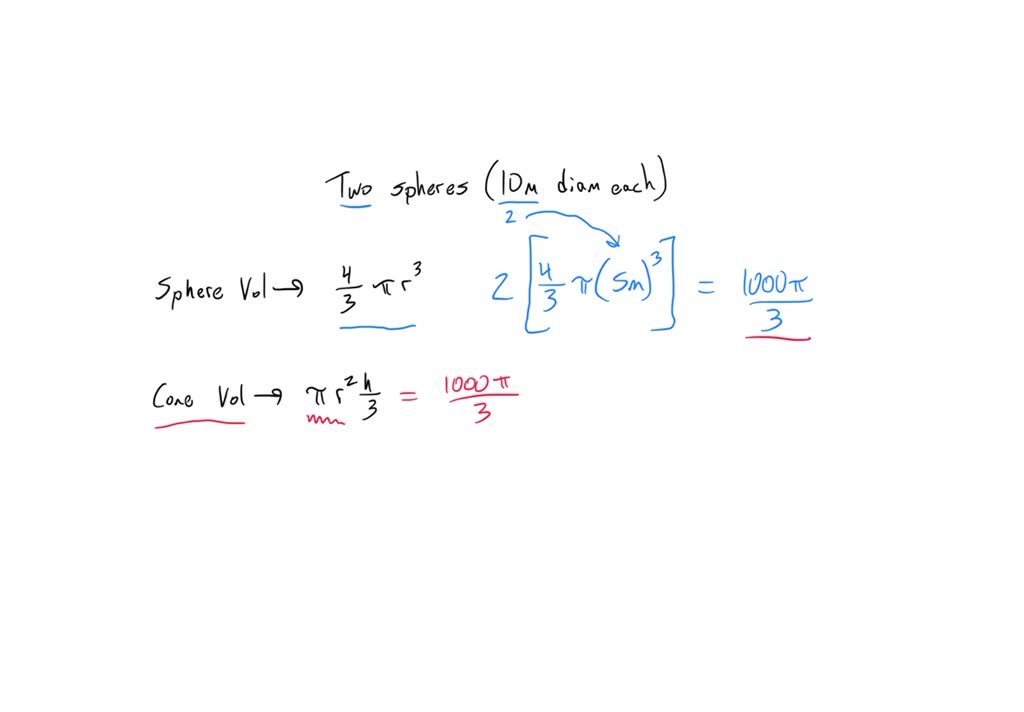 Two spheres (10m diam each)
2
Sphere Vol → 4/3 πr³ 2[4/3 π(5m)³] = 1000π/3
Cone Vol → πr² h/3 = 1000π/3